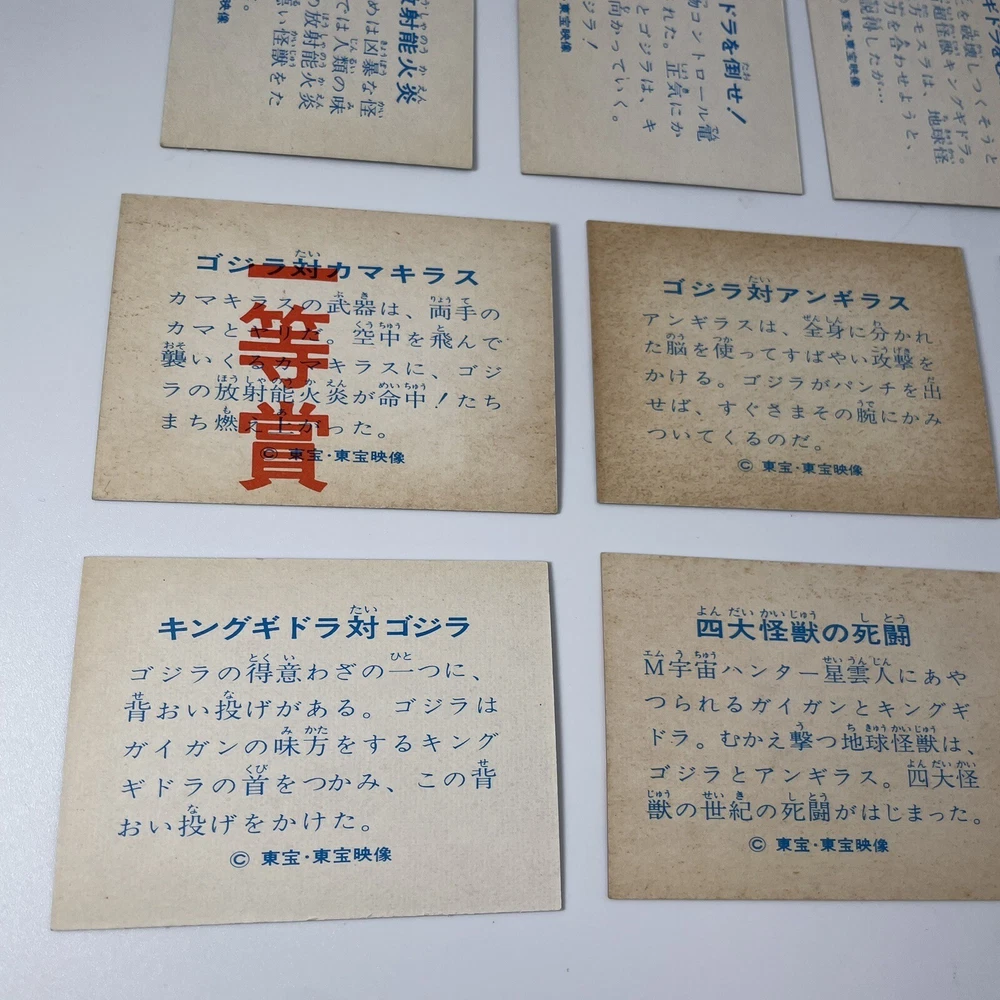 放射能火炎
めは凶暴な怪
では人類の味
の放射能火炎
悪い怪獣をた
ドラを倒せ!
コントロール電
れた。正気にか
とゴジラは、キ
向かっていく。
ゴジラ!
東宝映像
を破壊しつくそうと
怪獣キングギドラ。
方モスラは、地球怪
力を合わせようと、
説得したが…
© 東宝・東宝映像
ゴジラ対カマキラス
カマキラスの武器は、両手の
カマとヤリだ。空中を飛んで
襲いくるカマキラスに、ゴジ
ラの放射能火炎が命中!たち
まち燃え上がった。
© 東宝・東宝映像
一等賞
ゴジラ対アンギラス
アンギラスは、全身に分かれ
た脳を使ってすばやい攻撃を
かける。ゴジラがパンチを出
せば、すぐさまその腕にかみ
ついてくるのだ。
© 東宝・東宝映像
キングギドラ対ゴジラ
ゴジラの得意わざの一つに、
背おい投げがある。ゴジラは
ガイガンの味方をするキング
ギドラの首をつかみ、この背
おい投げをかけた。
© 東宝・東宝映像
四大怪獣の死闘
M宇宙ハンター星雲人にあや
つられるガイガンとキングギ
ドラ。むかえ撃つ地球怪獣は、
ゴジラとアンギラス。四大怪
獣の世紀の死闘がはじまった。
© 東宝・東宝映像